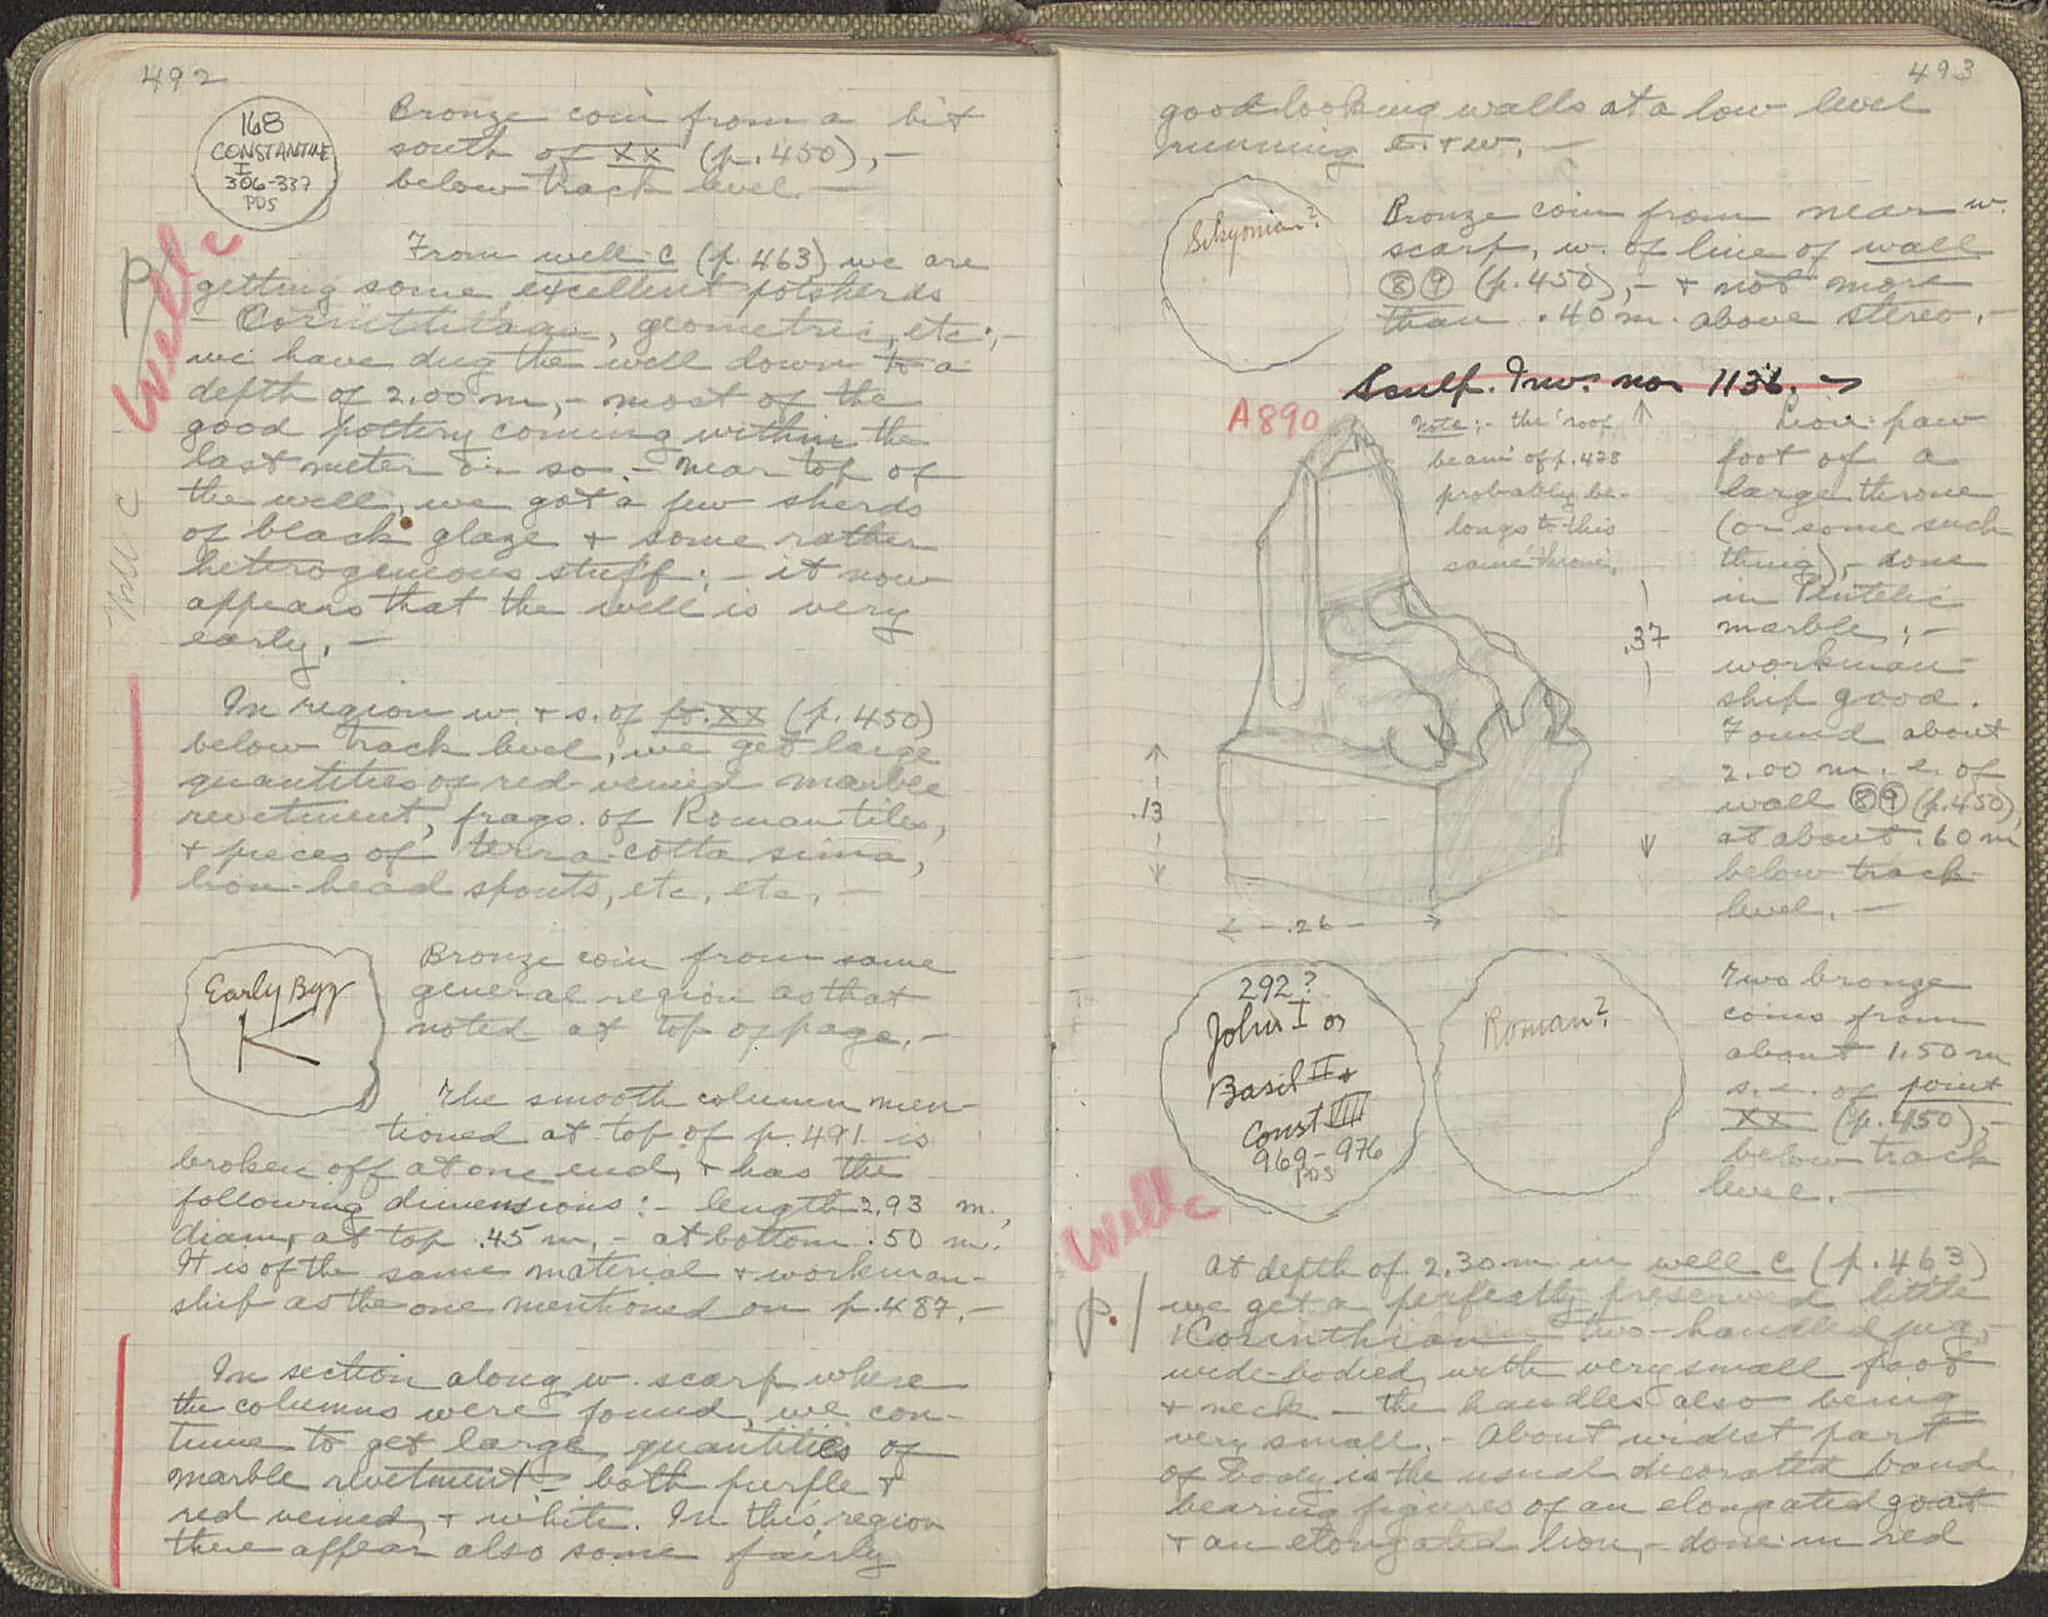 492
168
CONSTANTINE
I
306-337
PDS
Bronze coin from a bit
south of XX (p. 450), –
below track level. –
Well C
P.
From well C (p. 463) we are
getting some excellent potsherds
– Corinthian, geometric, etc; –
we have dug the well down to a
depth of 2.00 m, – most of the
good pottery coming within the
last meter or so. – Near top of
the well, we got a few sherds
of black glaze + some rather
heterogeneous stuff; – it now
appears that the well is very
early. –
Well C
In region w. + s. of pt. XX (p. 450)
below track level, we get large
quantities of red-veined marble
revetment, frags. of Roman tiles,
+ pieces of terra-cotta sima,
lion-head spouts, etc, etc. –
Early Byz
K
Bronze coin from same
general region as that
noted at top of page. –
The smooth column men-
tioned at top of p. 491 is
broken off at one end, + has the
following dimensions: – length 2.93 m.,
diam. at top .45 m. – at bottom .50 m.
It is of the same material + workman-
ship as the one mentioned on p. 487. –
In section along w. scarp where
the columns were found, we con-
tinue to get large quantities of
marble revetment – both purple +
red veined, + white. In this region
there appear also some fairly
493
good looking walls at a low level
running E. + W. –
Sikyonian?
Bronze coin from near w.
scarp, w. of line of wall
8 9 (p. 450), – + not more
than .40 m. above stereo. –
Sculp. Inv. no 1136.
A 890
Note: – the 'roof
beam' of p. 428
probably be-
longs to this
same throne.
.37
.13
.26
Lion-paw
foot of a
large throne
(or some such
thing), – done
in Pentelic
marble; –
workman-
ship good.
Found about
2.00 m. e. of
wall 8 9 (p. 450),
at about .60 m
below track-
level. –
292?
John I or
Basil II +
Const VIII
969-976
PDS
Roman?
Two bronze
coins from
about 1.50 m
s. e. of point
XX (p. 450), –
below track
level. –
Well C
P.
At depth of 2.30 m in well C (p. 463)
we get a perfectly preserved little
Corinthian two-handled jug, –
wide-bodied, with very small foot
+ neck – the handles also being
very small. – About widest part
of body is the usual decorated band
bearing figures of an elongated goat
+ an elongated lion, – done in red